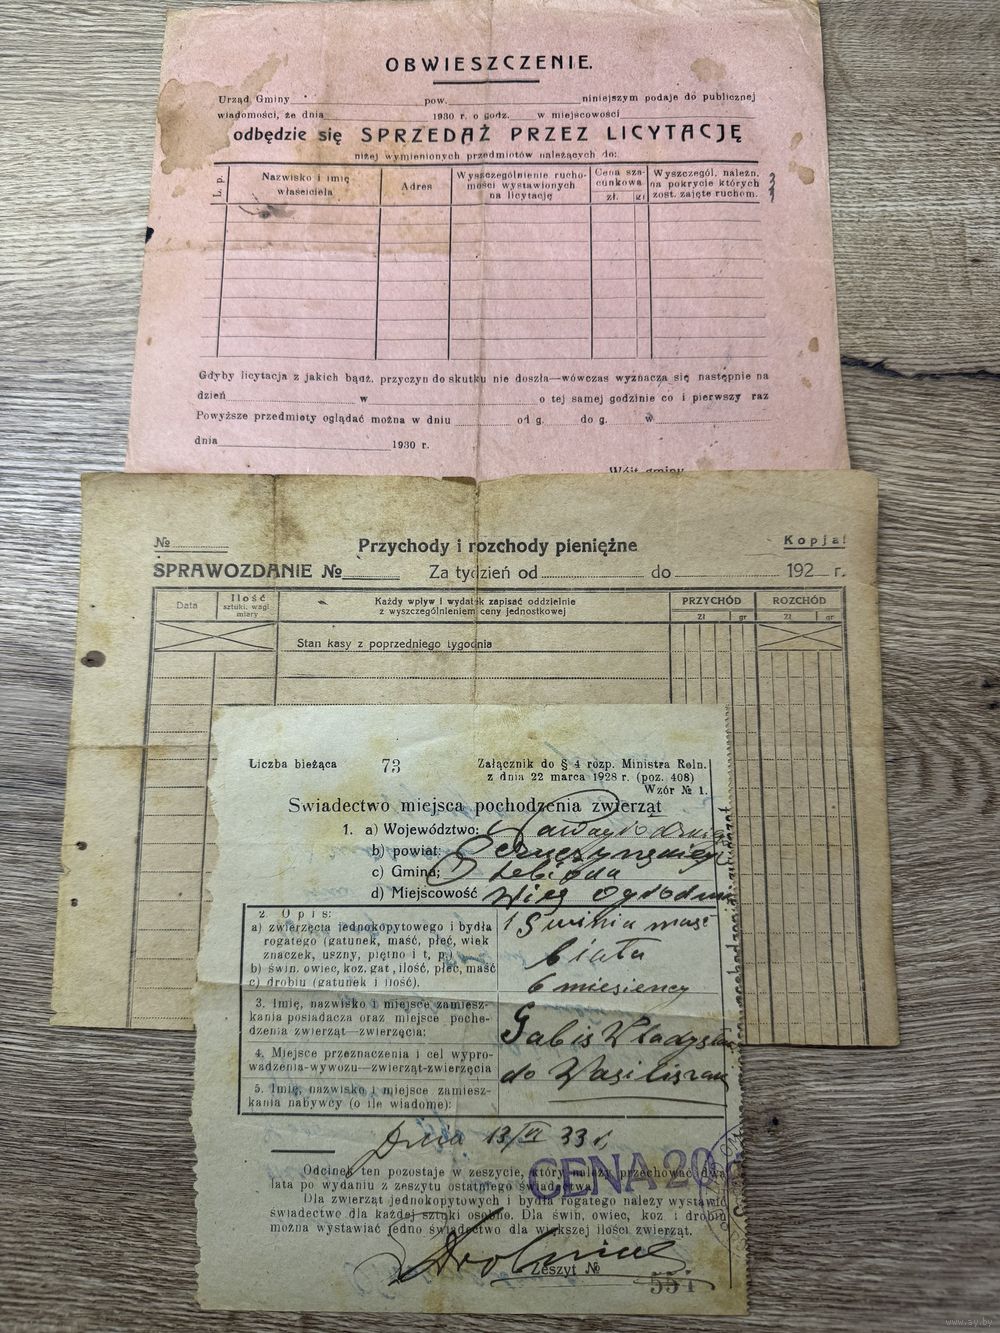 OBWIESZCZENIE.
Urząd Gminy pow. niniejszym podaje do publicznej
wiadomości, że dnia 1930 r. o godz. w miejscowości
odbędzie się SPRZEDAŻ PRZEZ LICYTACJĘ
niżej wymienionych przedmiotów należących do:
L. p. Nazwisko i imię właściciela Adres Wyszczególnienie ruchomości wystawionych na licytację Cena szacunkowa zł. gr Wyszczegól. należn. na pokrycie których zost. zajęte ruchom.
Gdyby licytacja z jakich bądź. przyczyn do skutku nie doszła—wówczas wyznacza się następnie na
dzień w o tej samej godzinie co i pierwszy raz
Powyższe przedmioty oglądać można w dniu od g. do g. w
dnia 1930 r.
Wójt gminy
№ Przychody i rozchody pieniężne Kopja!
SPRAWOZDANIE № Za tydzień od do 192 r.
Data Ilość sztuki, wagi miary Każdy wpływ i wydatek zapisać oddzielnie z wyszczególnieniem ceny jednostkowej PRZYCHÓD ROZCHÓD
Zł gr Zł gr
Stan kasy z poprzedniego tygodnia
Liczba bieżąca 73 Załącznik do § 4 rozp. Ministra Roln.
z dnia 22 marca 1928 r. (poz. 408)
Wzór № 1.
Swiadectwo miejsca pochodzenia zwierząt
1. a) Województwo:
b) powiat:
c) Gmina:
d) Miejscowość
2. Opis:
a) zwierzęcia jednokopytowego i bydła
rogatego (gatunek, maść, płeć, wiek
znaczek, uszny, piętno i t, p.)
b) świn, owiec, koz, gat, ilość, płeć, maść
c) drobiu (gatunek i ilość).
1 Swinia maść
biała
6 miesiency
3. Imię, nazwisko i miejsce zamiesz-
kania posiadacza oraz miejsce pocho-
dzenia zwierząt—zwierzęcia:
4. Miejsce przeznaczenia i cel wypro-
wadzenia-wywozu—zwierząt-zwierzęcia
do
5. Imię, nazwisko i miejsce zamiesz-
kania nabywcy (o ile wiadome):
Dnia 13/VI 33 r.
Odcinek ten pozostaje w zeszycie, który należy przechować dwa
lata po wydaniu z zeszytu ostatniego świadectwa.
CENA 20
Dla zwierząt jednokopytowych i bydła rogatego należy wystawić
świadectwo dla każdej sztuki osobno. Dla świn, owiec, koz i drobiu
można wystawiać jedno świadectwo dla większej ilości zwierząt.
Zeszyt № 551
www.ay.by